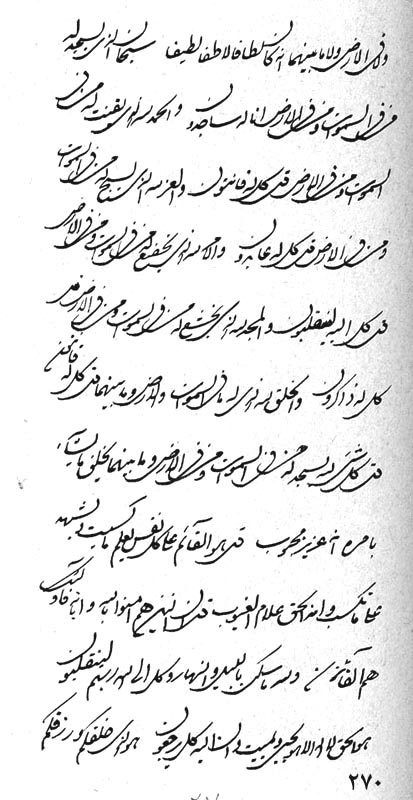 ولا فی الارض ولا ما بینهما انه کان لطافا لاطفا لطیفا سبحان الذی یسجد له
من فی السموات ومن فی الارض انا له ساجدون والحمد لله الذی یقنت له من فی
السموات ومن فی الارض قل کل له قانتون والعز لله الذی یسبح له من فی السموات
ومن فی الارض قل کل له عابدون والامر لله الذی یخضع له من فی السموات ومن فی الارض
قل کل الیه لینقلبون والمجد لله الذی یخشع له من فی السموات ومن فی الارض قل
کل له ذاکرون والخلق لله الذی له ما فی السموات والارض وما بینهما قل کل له قانتون
قل کل شیء لیسجد له من فی السموات ومن فی الارض وما بینهما یخلق ما یشاء
بامره انه عزیز محبوب قل هو القائم علی کل نفس لیعلم ما کسبت ویشهد
علی ما تکسب وانه لحق علام الغیوب قل ان الذین هم امنوا بالله وایاته فاولئک
هم الفائزون وله ما سکن باللیل والنهار وکل الی الله ربهم لینقلبون
هو الحق لا اله الا هو یحیی ویمیت وان الیه کل یرجعون هو الذی خلقکم ورزقکم
۲۷۰